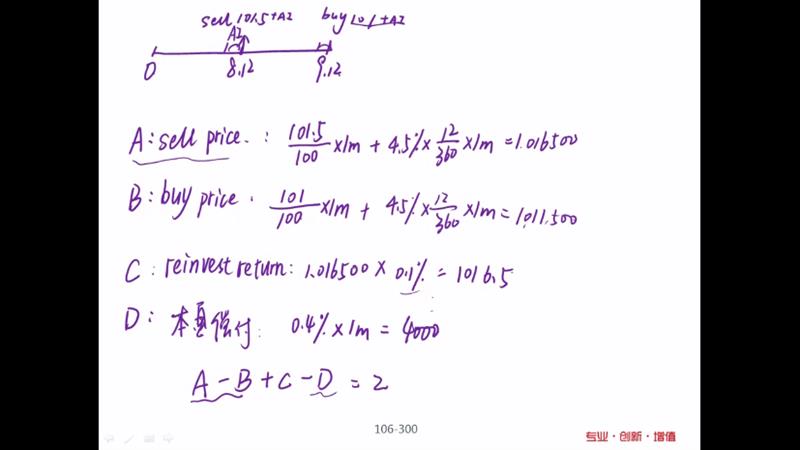 sell 101.5+AI buy 101+AI
AI
0 8.12 9.12
A: sell price. : 101.5/100 ×1m + 4.5%×12/360×1m = 1.016500
B: buy price . 101/100 ×1m + 4.5%×12/360×1m = 1,011.500
C: reinvest return: 1.016500 × 0.1% = 1016.5
D: 本 偿付: 0.4%×1m = 4000
A - B + C - D = 2
106-300
专业·创新·增值